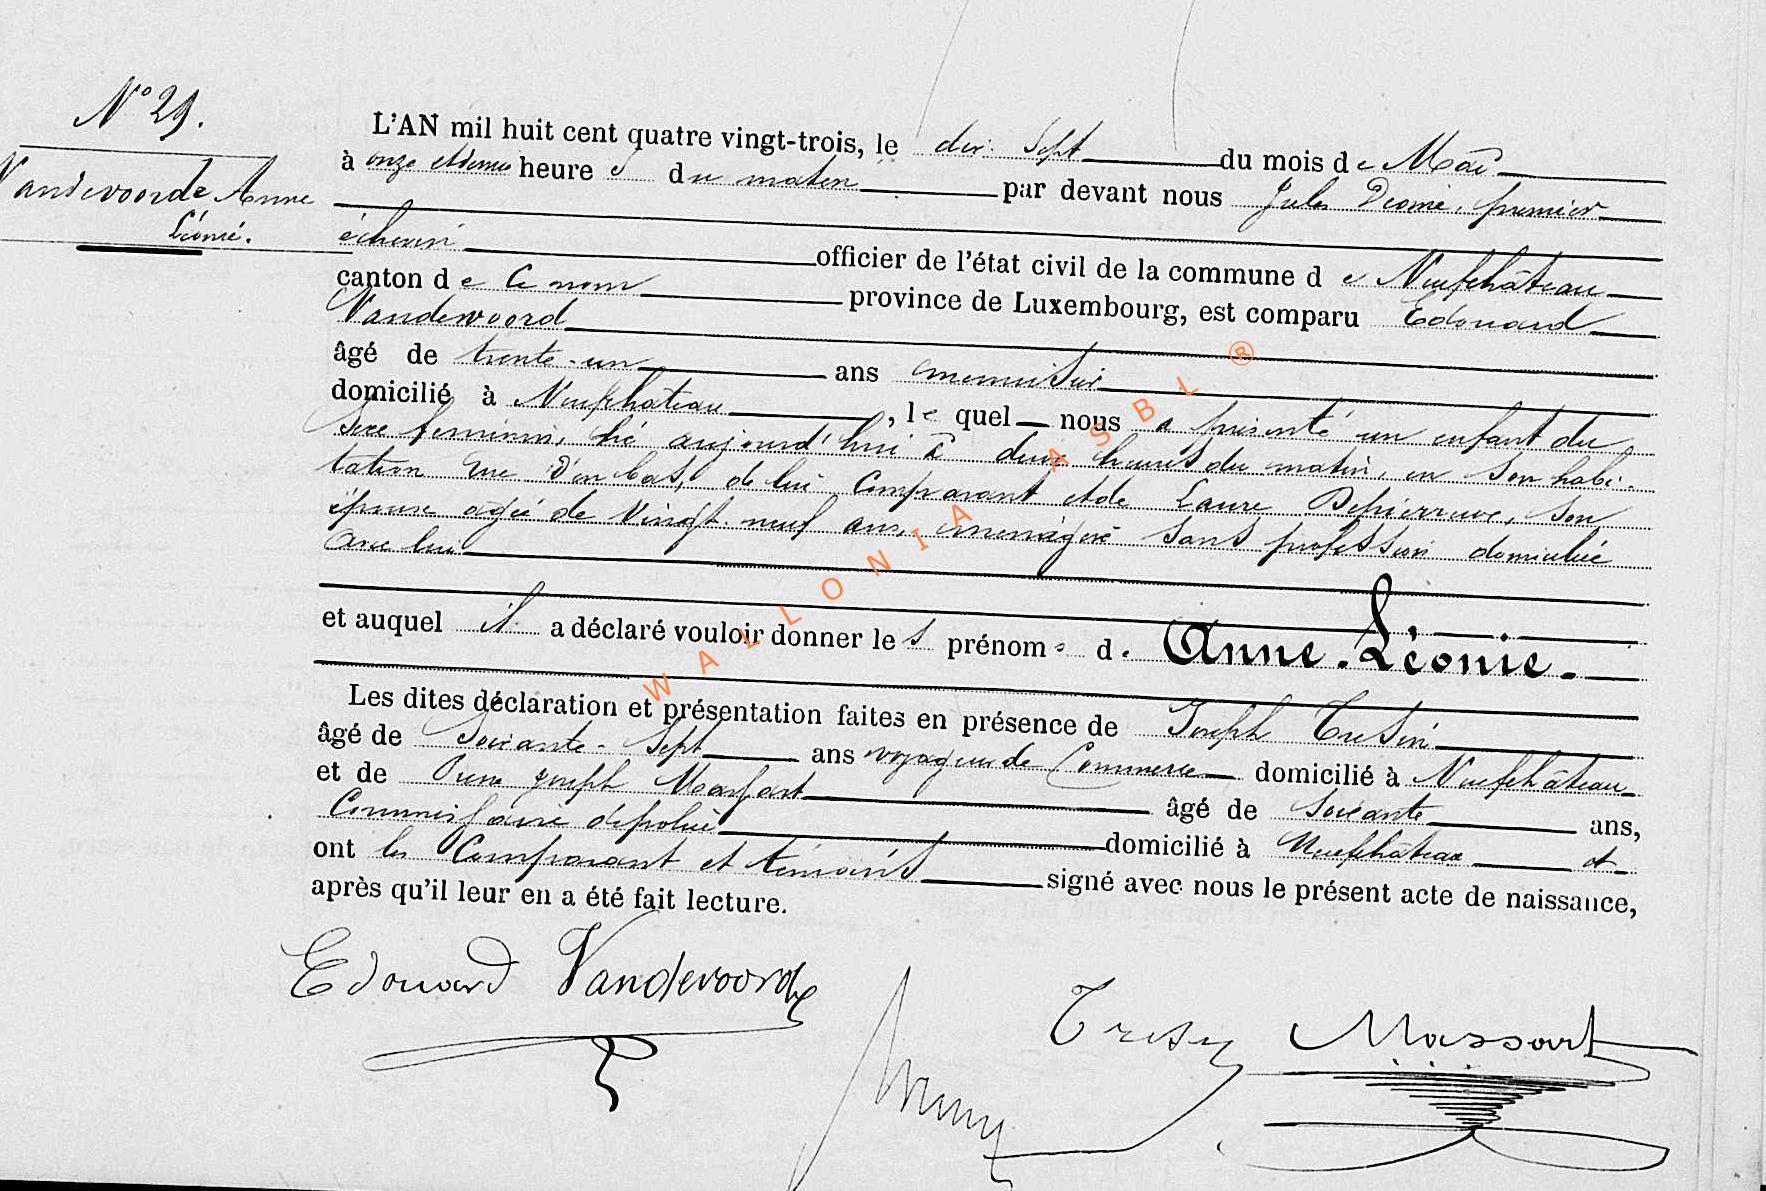 N° 29.
Vandevoorde Anne
Léonie.
L'AN mil huit cent quatre vingt-trois, le dix Sept du mois de Mai
à onze et demie heures du matin par devant nous Jules premier
échevin officier de l'état civil de la commune de Neufchâteau
canton de Ce nom province de Luxembourg, est comparu Edouard
Vandevoord
âgé de trente-un ans menuisier
domicilié à Neufchâteau, le quel nous a présenté un enfant du
Sexe féminin, né aujourd'hui à deux heures du matin, en Son habi-
tation rue d'en bas, de lui Comparant et de Laure Son
épouse agée de Vingt-neuf ans, ménagère Sans profession domiciliée
avec lui
et auquel il a déclaré vouloir donner les prénoms d. Anne-Léonie.-
Les dites déclaration et présentation faites en présence de Joseph
âgé de Soixante-Sept ans voyageur de Commerce domicilié à Neufchâteau
et de Pierre Joseph Massart âgé de Soixante ans,
Commissaire de police domicilié à Neufchâteau et
ont les Comparant et témoins signé avec nous le présent acte de naissance,
après qu'il leur en a été fait lecture.
Edouard Vandevoorde
Massart
WALLONIA ASBL ®